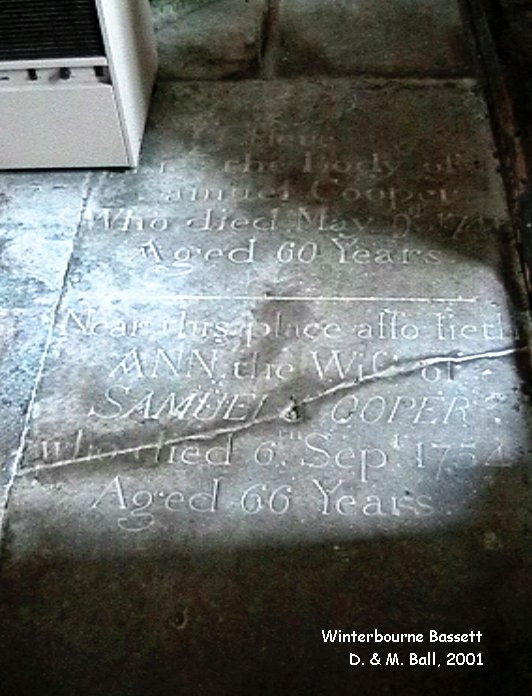 Here
the Body of
Samuel Cooper
Who died May 9
Aged 60 Years
Near this place also lieth
ANN the Wife of
SAMUEL COOPER
who died 6th Sept. 1754
Aged 66 Years.
Winterbourne Bassett
D. & M. Ball, 2001